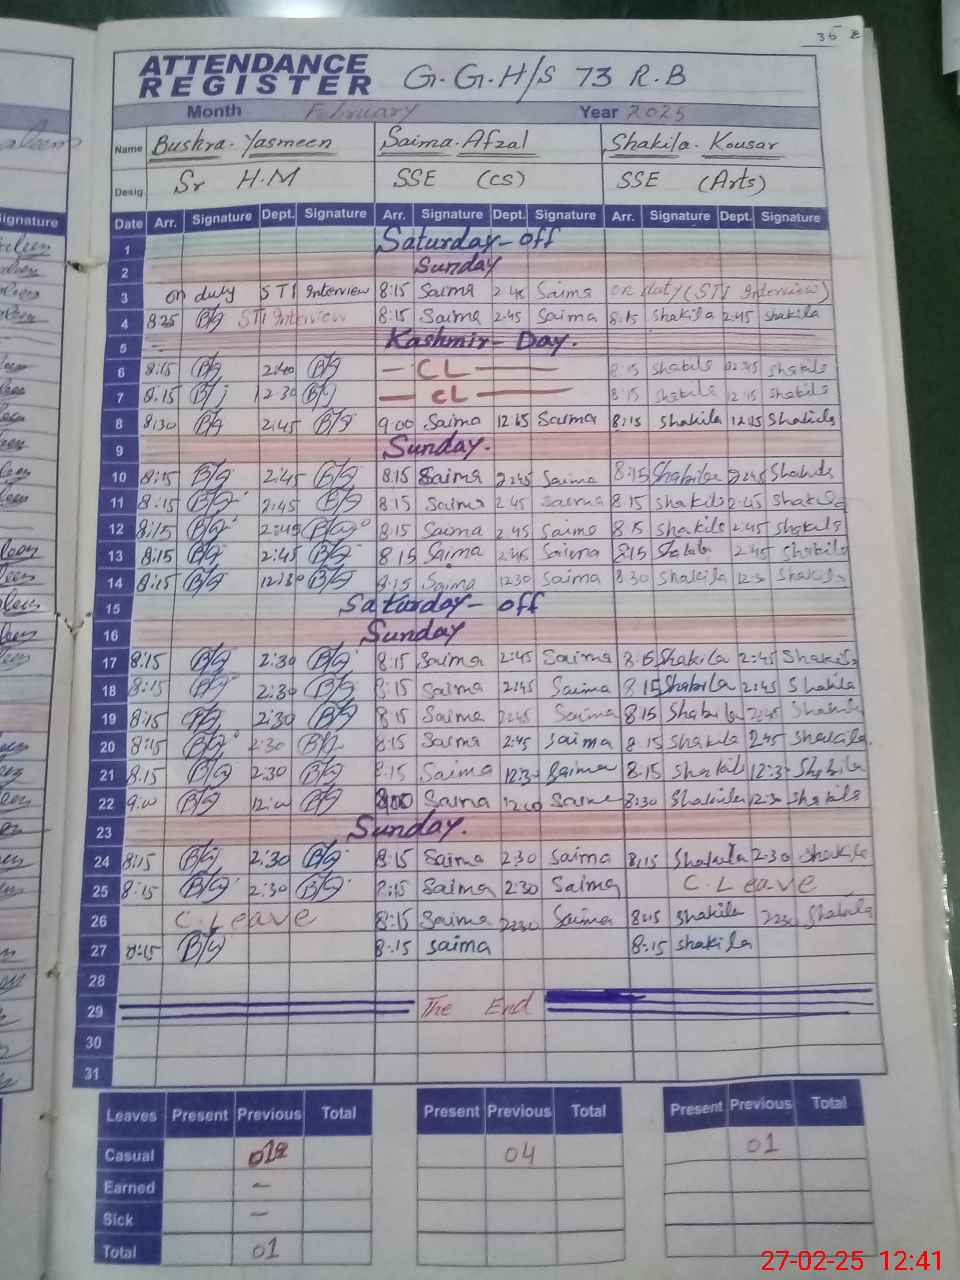 35
ATTENDANCE REGISTER G.G.H/S 73 R.B
Month February Year 2025
Name Bushra. Yasmeen Saima. Afzal Shakila. Kousar
Desig. Sr H.M SSE (CS) SSE (Arts)
Date Arr. Signature Dept. Signature Arr. Signature Dept. Signature Arr. Signature Dept. Signature
1 Saturday - off
2 Sunday
3 on duty STI Interview 8:15 Saima 2:45 Saima on duty (STI Interview)
4 8:35 STI Interview 8:15 Saima 2:45 Saima 8:15 shakila 2:45 shakila
5 Kashmir - Day.
6 8:15 2:40 — CL — 8:15 shakila shakila
7 8:15 12:30 — CL — 8:15 shakila 12:15 shakila
8 8:30 2:45 9:00 Saima Saima 8:15 shakila 12:15 Shakila
9 Sunday.
10 8:15 2:45 8:15 Saima 2:45 Saima 8:15 Shakila 2:45 Shakila
11 8:15 2:45 8:15 Saima 2:45 Saima 8:15 shakila 2:45 shakila
12 8:15 2:45 8:15 Saima 2:45 Saima 8:15 shakila 2:45 shakila
13 8:15 2:45 8:15 Saima 2:45 Saima 8:15 2:45 shakila
14 8:15 12:30 8:15 Saima 12:30 Saima 8:30 Shakila 12:30 Shakila
15 Saturday - off
16 Sunday
17 8:15 2:30 8:15 Saima 2:45 Saima 8:15 Shakila 2:45 Shakila
18 8:15 2:30 8:15 Saima 2:45 Saima 8:15 Shakila 2:45 Shakila
19 8:15 2:30 8:15 Saima 2:45 Saima 8:15 Shakila 2:45 Shakila
20 8:15 2:30 8:15 Saima 2:45 Saima 8:15 Shakila 2:45 Shakila
21 8:15 2:30 8:15 Saima 12:30 Saima 8:15 Shakila 12:30 Shakila
22 9:00 12:00 8:00 Saima Saima 8:30 Shakila 12:30 Shakila
23 Sunday.
24 8:15 2:30 8:15 Saima 2:30 Saima 8:15 Shakila 2:30 shakila
25 8:15 2:30 8:15 Saima 2:30 Saima C. Leave
26 C. Leave 8:15 Saima 2:30 Saima 8:15 shakila 2:30 Shakila
27 8:15 8:15 saima 8:15 shakila
28
29 The End
30
31
Leaves Present Previous Total Present Previous Total Present Previous Total
Casual 04 01
Earned -
Sick -
Total 01
27-02-25 12:41